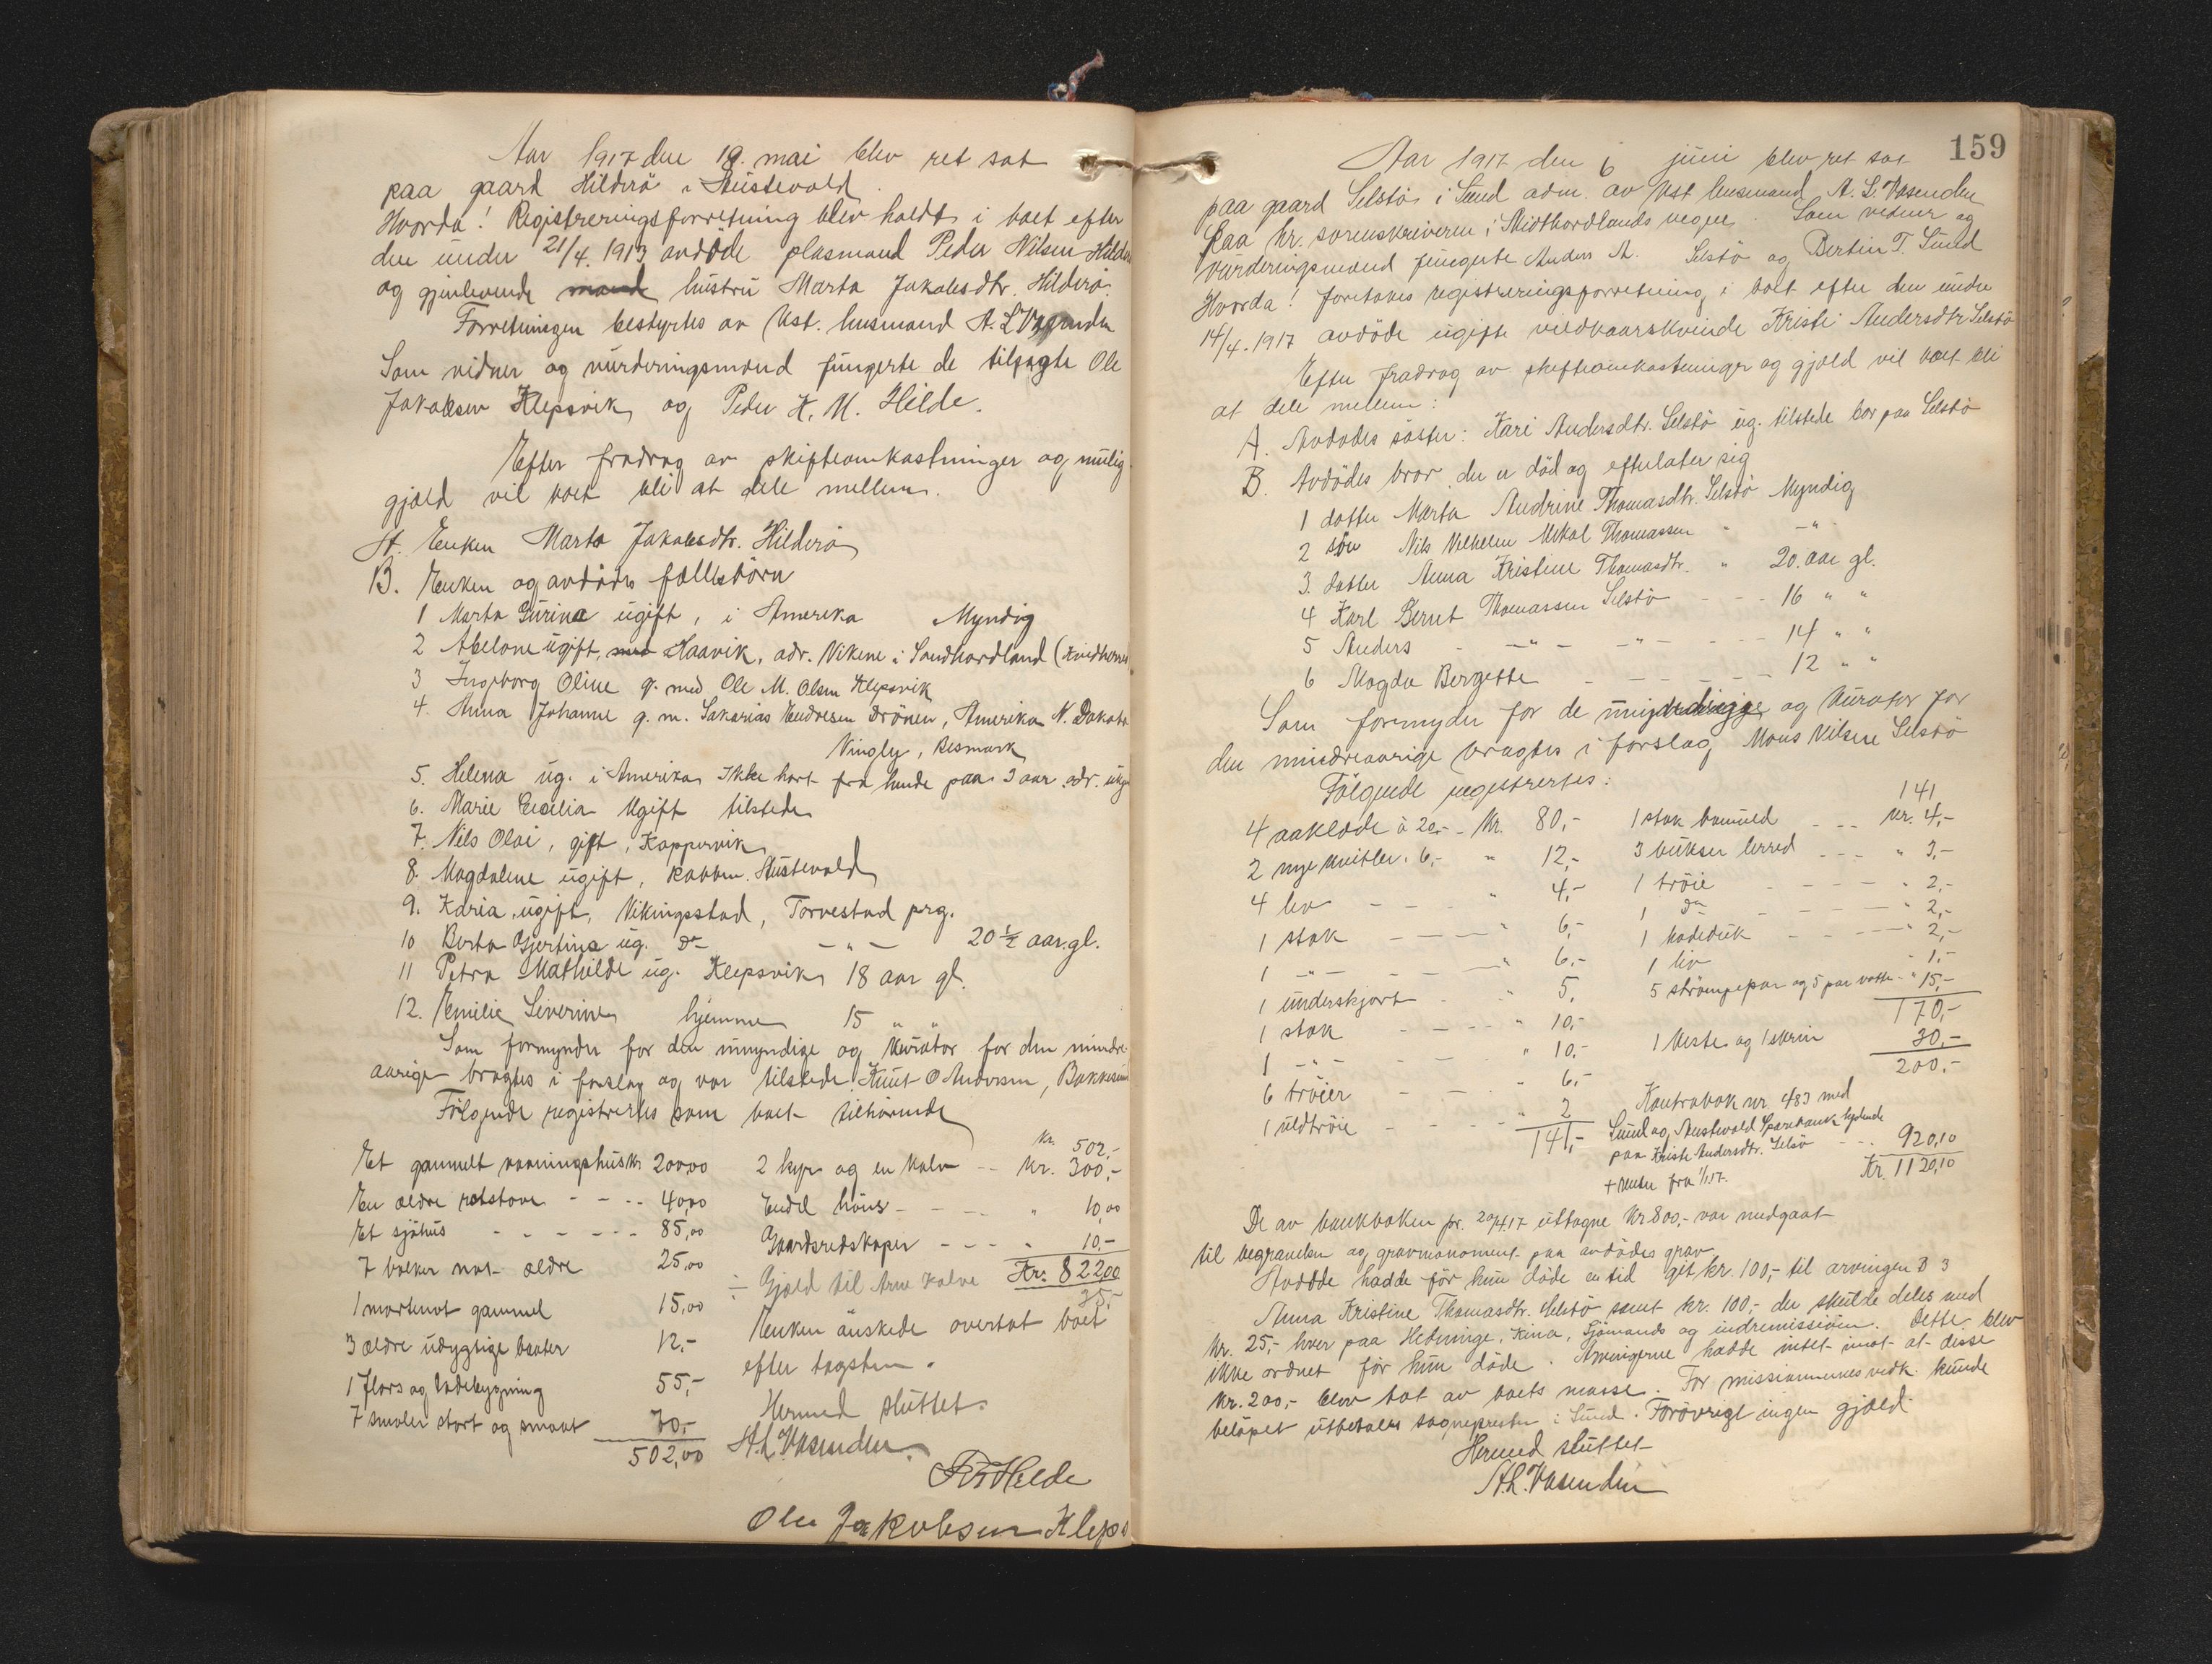 Aar 1917 den 19. mai blev ret sat
paa gaard Hilderö i Austevold.
Hvorda! Registreringsforretning blev holdt i boet efter
den under 21/4. 1913 avdöde plasmand Peder Nilsen Hilder
og gjenlevende mand hustru Marta Jakobsdtr. Hilderö.
Forretningen bestyrtes av Kst. lensmand A. L. Vasenden
Som vidner og vurderingsmænd fungerte de tilsagte Ole
Jakobsen Klepsvik og Peder K. M. Hilde.
Efter fradrag av skifteomkostninger og mulig
gjæld vil boet bli at dele mellem.
A. Enken Marta Jakobsdtr. Hilderö
B. Enken og avdödes fællesbörn
1 Marta Gurina ugift, i Amerika Myndig
2 Abelone ugift, med Haavik, adr. Vikene i Sondhordland (Kvidhems
3 Ingeborg Oline g. med Ole M. Olsen Klepsvik
4. Anna Johanne g. m. Sakarias Endresen Drönen, Amerika N. Dakota
Vingly, Besmark
5. Helena ug. i Amerika Ikke hört fra hende paa 3 aar adr. ukj
6. Marie Cecilia Ugift tilstede
7. Nils Olai, gift, Koppervik
8. Magdalene ugift, Kobben. Austevold
9. Karia, ugift, Vikingstad, Torvestad prg.
10 Berta Gjertina ug. do - " - 20 1/2 aar. gl.
11 Petra Mathilde ug. Klepsvik 18 aar gl.
12. Emilie Severine hjemme 15 " "
Som formynder for den umyndige og kurator for den mindre-
aarige bragtes i forslag og var tilstede Knut O Andersen, Bakkesund
Fölgende registrertes som boet tilhörende
Et gammelt vaaningshus kr. 200,00
En ældre rotstove - - - 40,00
Et sjöhus - - - - - 85,00
7 bolker not ældre 25,00
1 mortnot gammel 15,00
3 ældre udygtige baater 12,-
1 flors og ladebygning 55,-
7 smaler stort og smaat 70,-
502,00
kr. 502,-
2 kyr og en kalv - - kr. 300,-
Endel höns - - - - " 10,00
Gaardsredskaper - - - " 10,-
Kr. 822,00
÷ Gjæld til Arne Kalve 35,-
Enken önskede overtat boet
efter taksten.
Hermed sluttet.
A. L. Vasenden.
P K M Hilde
Ole Jakobsen Kleps
159
Aar 1917 den 6 juni blev ret sat
paa gaard Selstö i Sund adm. av Kst lensmand A. L. Vasenden
paa hr. sorenskriveren i Midthordlands vegne. Som vidner og
vurderingsmænd fungerte Anders A. Selstö og Bertin T. Sund
Hvorda! foretokes registreringsforretning i boet efter den under
14/4. 1917 avdöde ugifte vilkaarskvinde Kristi Andersdtr Selstö
Efter fradrag av skifteomkostninger og gjæld vil boet bli
at dele mellem:
A. Avdödes söster: Kari Andersdtr. Selstö ug. tilstede bor paa Selstö
B. Avdödes bror der er död og efterlater sig
1 datter Marta Andrine Thomasdtr. Selstö Myndig
2 sön Nils Vilhelm Mikal Thomassen " - " -
3. datter Anna Kristine Thomasdtr. " 20. aar gl.
4 Karl Bernt Thomassen Selstö - - - 16 " "
5 Anders - - " - - " - - - - 14 " "
6 Magda Bergette - - - - - - 12 " "
Som formynder for de umyndige og kurator for
den mindreaarige bragtes i forslag Mons Nilsen Selstö
Fölgende registrertes:
4 aaklæde à 20,- - kr. 80,-
2 nye kvitler. 6,- " 12,-
4 liv - - - " 4,-
1 stak - - - " 6,-
1 - " - - - - " 6,-
1 underskjort - " 5,
1 stak - - - - " 10,-
1 - " - - - - " 10,-
6 tröier - - - " 6,-
1 uldtröie - - - - " 2
141,-
141
1 stak bomuld - - - kr. 4,-
3 bukser lerred - - - " 3,-
1 tröie - - - - " 2,-
1 do - - - - " 2,-
1 hodeduk - - - - " 2,-
1 liv " 1,-
5 strömpepar og 5 par votter - " 15,-
170,-
1 kiste og 1 skrin 30,-
200,-
Kontrabok nr. 483 med
Sund og Austevold Sparebank lydende
paa Kristi Andersdtr. Selsö - - - 920,10
+ renter fra 1/1 17. Kr. 1120,10
De av bankboken pr. 20/4 17 uttagne kr 800,- var medgaat
til begravelsen og gravmonoment paa avdödes grav
Avdöde hadde för hun döde en tid git kr. 100,- til arvingen B 3
Anna Kristine Thomasdtr. Selstö samt kr. 100,- der skulde deles med
kr. 25,- hver paa Hedninge, Kina, Sjömands og indremissionen. Dette blev
ikke ordnet för hun döde. Arvingerne hadde intet imot at disse
kr. 200,- blev tat av boets masse. For missionernes vedk. kunde
belöpet utbetales sognepresten i Sund. Forövrigt ingen gjæld.
Hermed sluttet
A. L. Vasenden